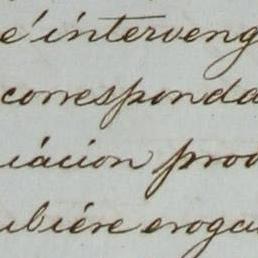 é interveng
corresponda
iácion prod
ubiére eroga